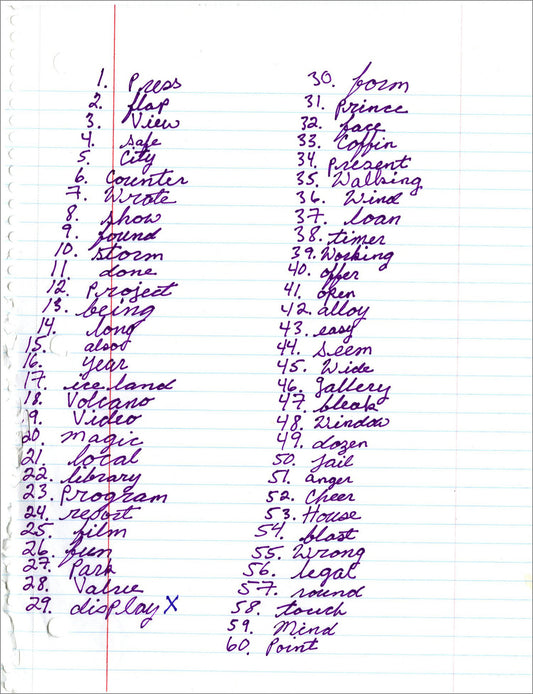 1. Press
2. flap
3. View
4. safe
5. City
6. Counter
7. Wrote
8. show
9. found
10. storm
11. done
12. Project
13. being
14. long
15. also
16. year
17. iceland
18. Volcano
9. Video
20. magic
21. local
22. library
23. Program
24. report
25. film
26. fun
27. Park
28. Value
29. display X
30. form
31. Prince
32. face
33. Coffin
34. present
35. Walking
36. Wind
37. loan
38. timer
39. Working
40. offer
41. open
42. alloy
43. easy
44. seem
45. Wide
46. gallery
47. bleak
48. Window
49. dozen
50. Jail
51. anger
52. Cheer
53. House
54. blast
55. Wrong
56. legal
57. round
58. touch
59. Mind
60. Point